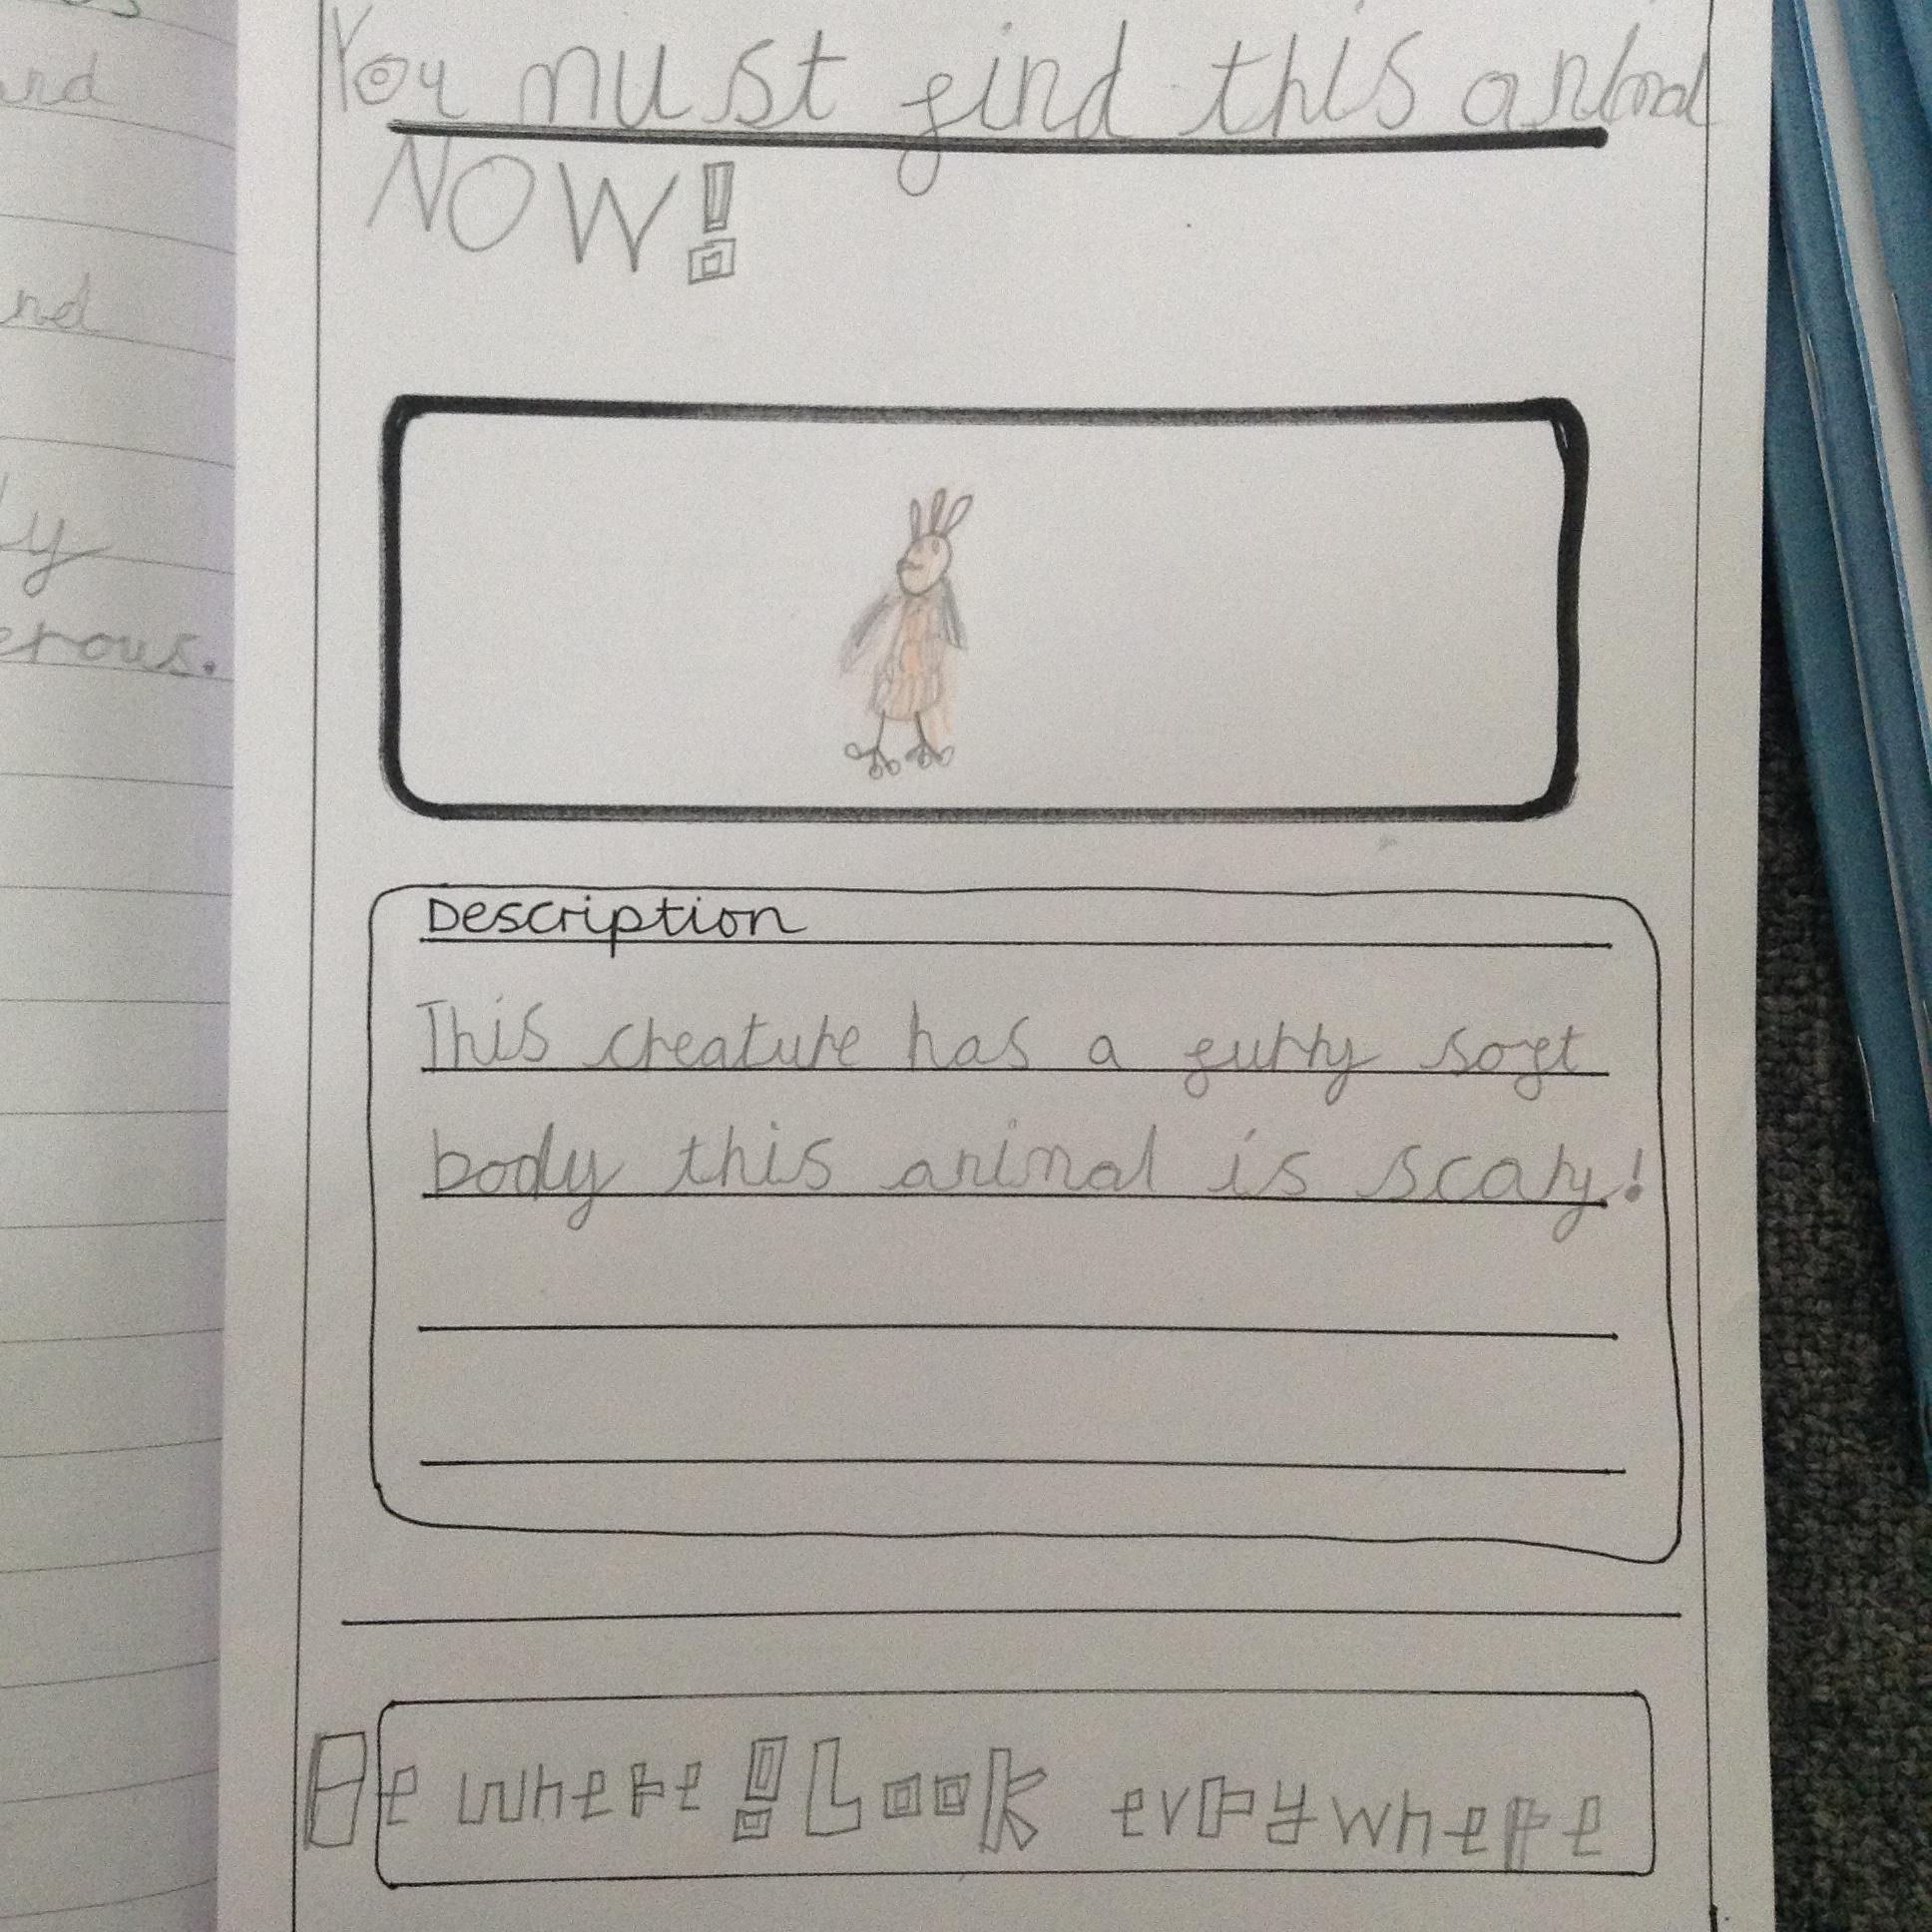 and
nd
ly
erous.
You must find this animal
NOW!
Description
This creature has a furry soft
body this animal is scary!
Be where! Look evrywhere